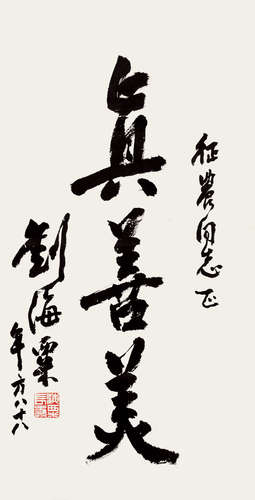 征农同志正
真善美
刘海粟
年方八十八